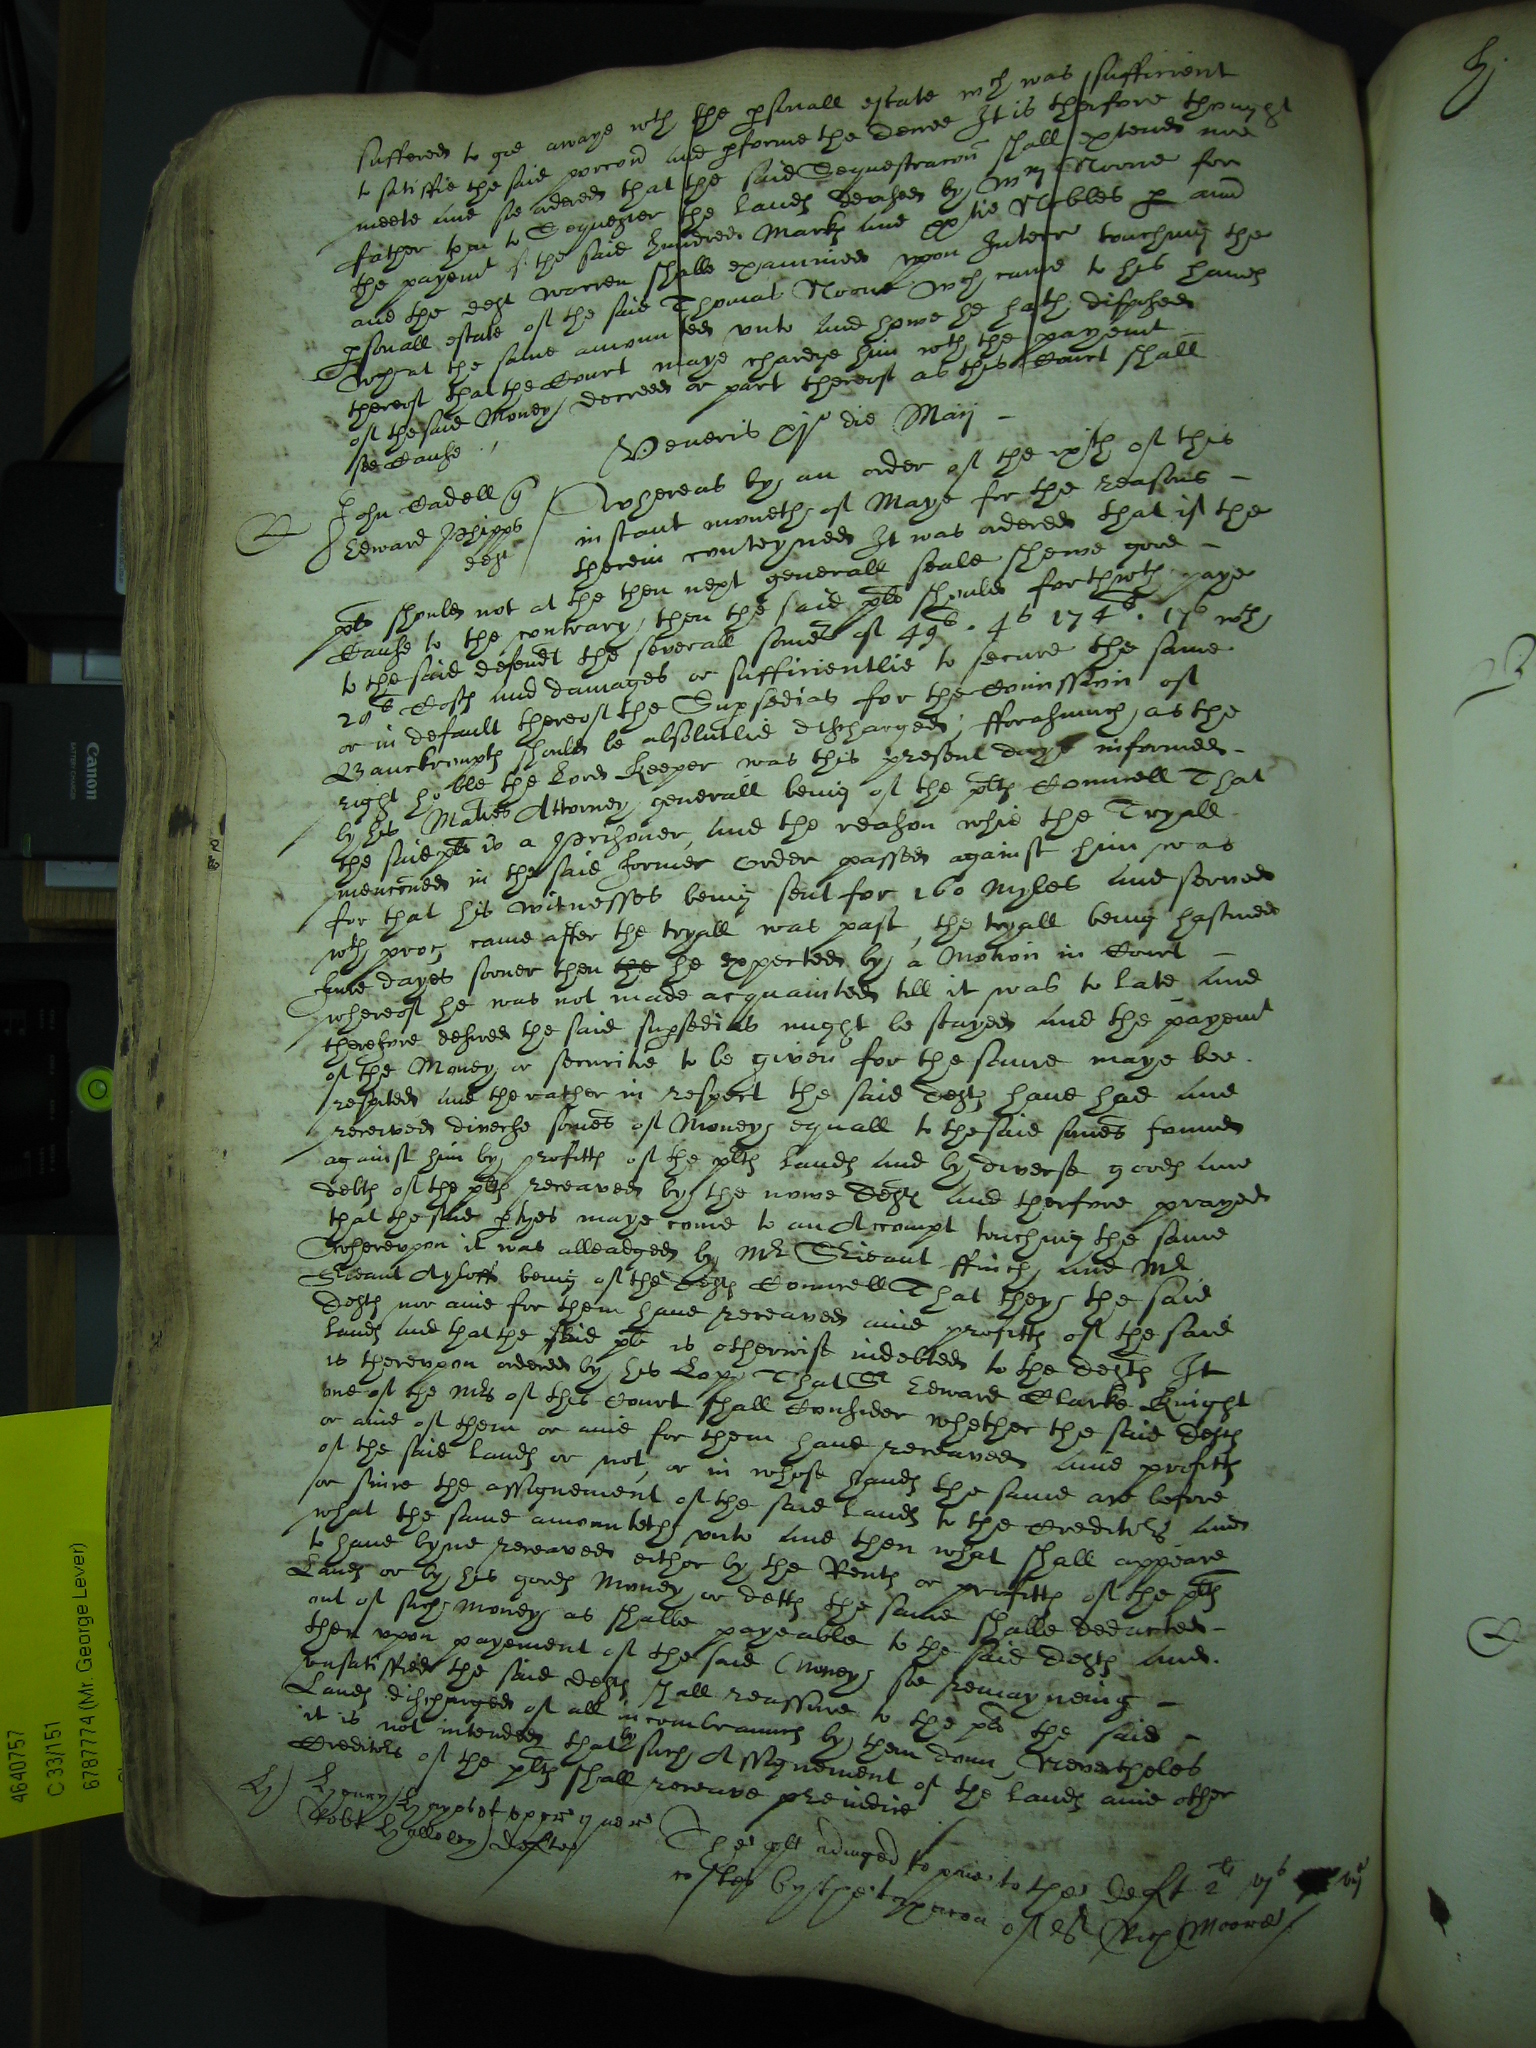 suffered to goe awaye wth the psonall estate wch was sufficient
to satisfie the said porcon and pforme the decree It is therfore thought
meete and soe ordered that the said Sequestracon shall extend noe
father then to Sequester the lands devised by Wm Moone for
the payemt of the said hundred Marks and xxtie Nobles p ann
and the deft Warren shalbe examined vpon Interr touching the
psonall estate of the said Thomas Moone Wch came to his hands
What the same amounted vnto and howe he hath disposed
thereof that the Court maye chardge him wth the payemt
of the said Money decreed or part thereof as this Court shall
see Cause
Veneris xj die Maij
John Cadell q
Edward Phipps
deft
Whereas by an order of the ixth of this
instant moneth of Maye for the reasons
therein conteyned It was ordered that if the
plt should not at the then next generall seale shewe good
Cause to the contrary, then the said plt should forthwth paye
to the said defendt the severall somes of 49li. 4s 174li. 17s wth
20li Costs and damages or sufficientlie to secure the same
or in default thereof the Supsedias for the Comission of
Banckrowpts should be absolutlie discharged, fforasmuch as the
right hoble the Lord Keeper was this present daye informed
by his Maties Attorney generall being of the plts Councell That
the said plt is a Prisoner, and the reason whie the Tryall
menconed in the said former Order passed against him was
for that his witnesses being sent for 160 Myles and served
wth proces came after the tryall was past, the tryall being hastned
some dayes sooner then the he expected by a Motion in Court
whereof he was not made acquainted till it was to late and
therefore desired the said supsedias might be stayed and the payemt
of the Money or securitie to be given for the same maye bee
respited and the rather in respect the said defts have had and
received diverse somes of Money equall to the said somes found
against him by profitts of the plts lands and by diverse goods and
debts of the plts receaved by the nowe defts and therfore prayed
that the said ptyes maye come to an Accompt touching the same
Wherevpon it was alleadged by Mr Srieant ffinch and Mr
Srieant Ayloff being of the defts Councell That they the said
defts nor anie for them have receaved anie profitts of the said
lands and that the said plt is otherwise indebted to the defts It
is therevpon ordered by his Lopp That Sr Edward Clarke Knight
one of the Mrs of this Court shall Consider whether the said defts
or anie of them or anie for them have receaved anie profitts
of the said lands or not, or in whose hands the same are before
or since the assignement of the said lands to the Creditors and
what the same amounteth vnto and then what shall appeare
to have byne receaved either by the Rents or profitts of the plts
Lands or by his goods Money or detts the same shalbe deducted
out of such Money as shalbe payeable to the said defts and
then vpon payement of the said Money soe remayneing
vnsatisfied the said defts shall reassure to the plt the said
Lands discharged of all incombrances by them donn, Nevertheles
it is not intended that by such Assignement of the lands anie other
Creditors of the plts shall receave preiudice
The plt adiuged to paie to the Deft 2li vjs viijd
costes by the taxacon of Sr Rich Moore